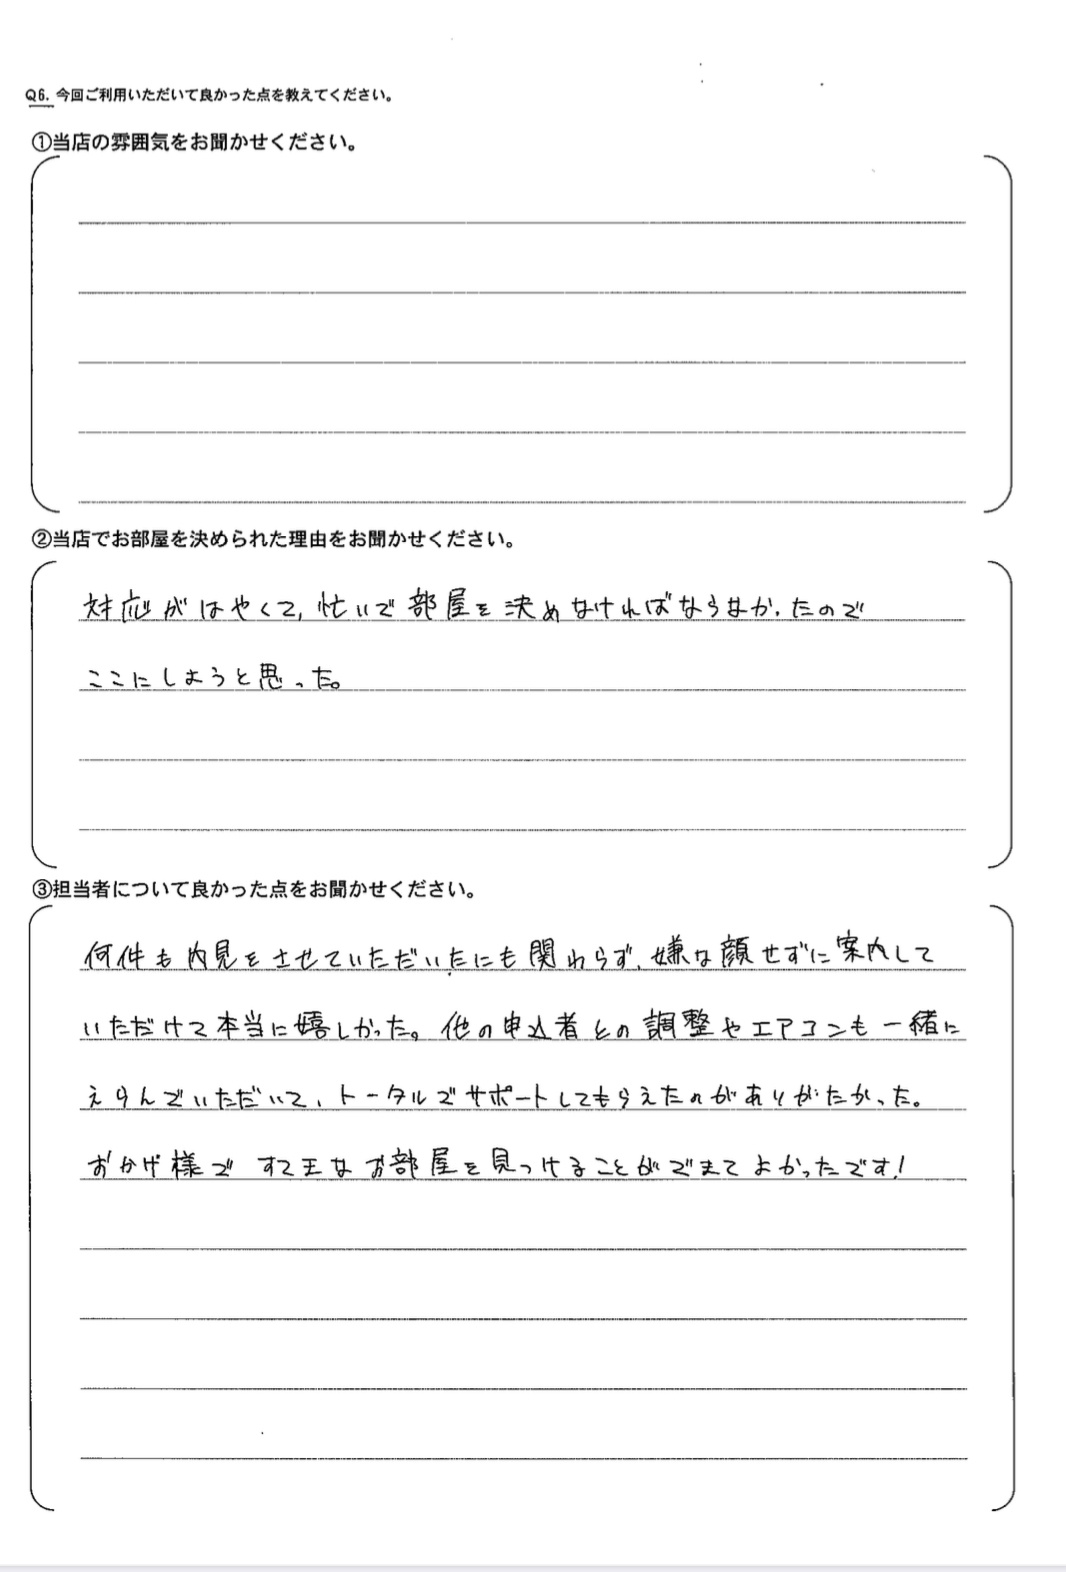 Q6. 今回ご利用いただいて良かった点を教えてください。
①当店の雰囲気をお聞かせください。
②当店でお部屋を決められた理由をお聞かせください。
対応がはやくて、忙いで部屋を決めなければならなかったので
ここにしようと思った。
③担当者について良かった点をお聞かせください。
何件も内見をさせていただいたにも関わらず、嫌な顔せずに案内して
いただけて本当に嬉しかった。他の申込者との調整やエアコンも一緒に
えらんでいただいて、トータルでサポートしてもらえたのがありがたかった。
おかげ様で すてきなお部屋を見つけることができてよかったです!